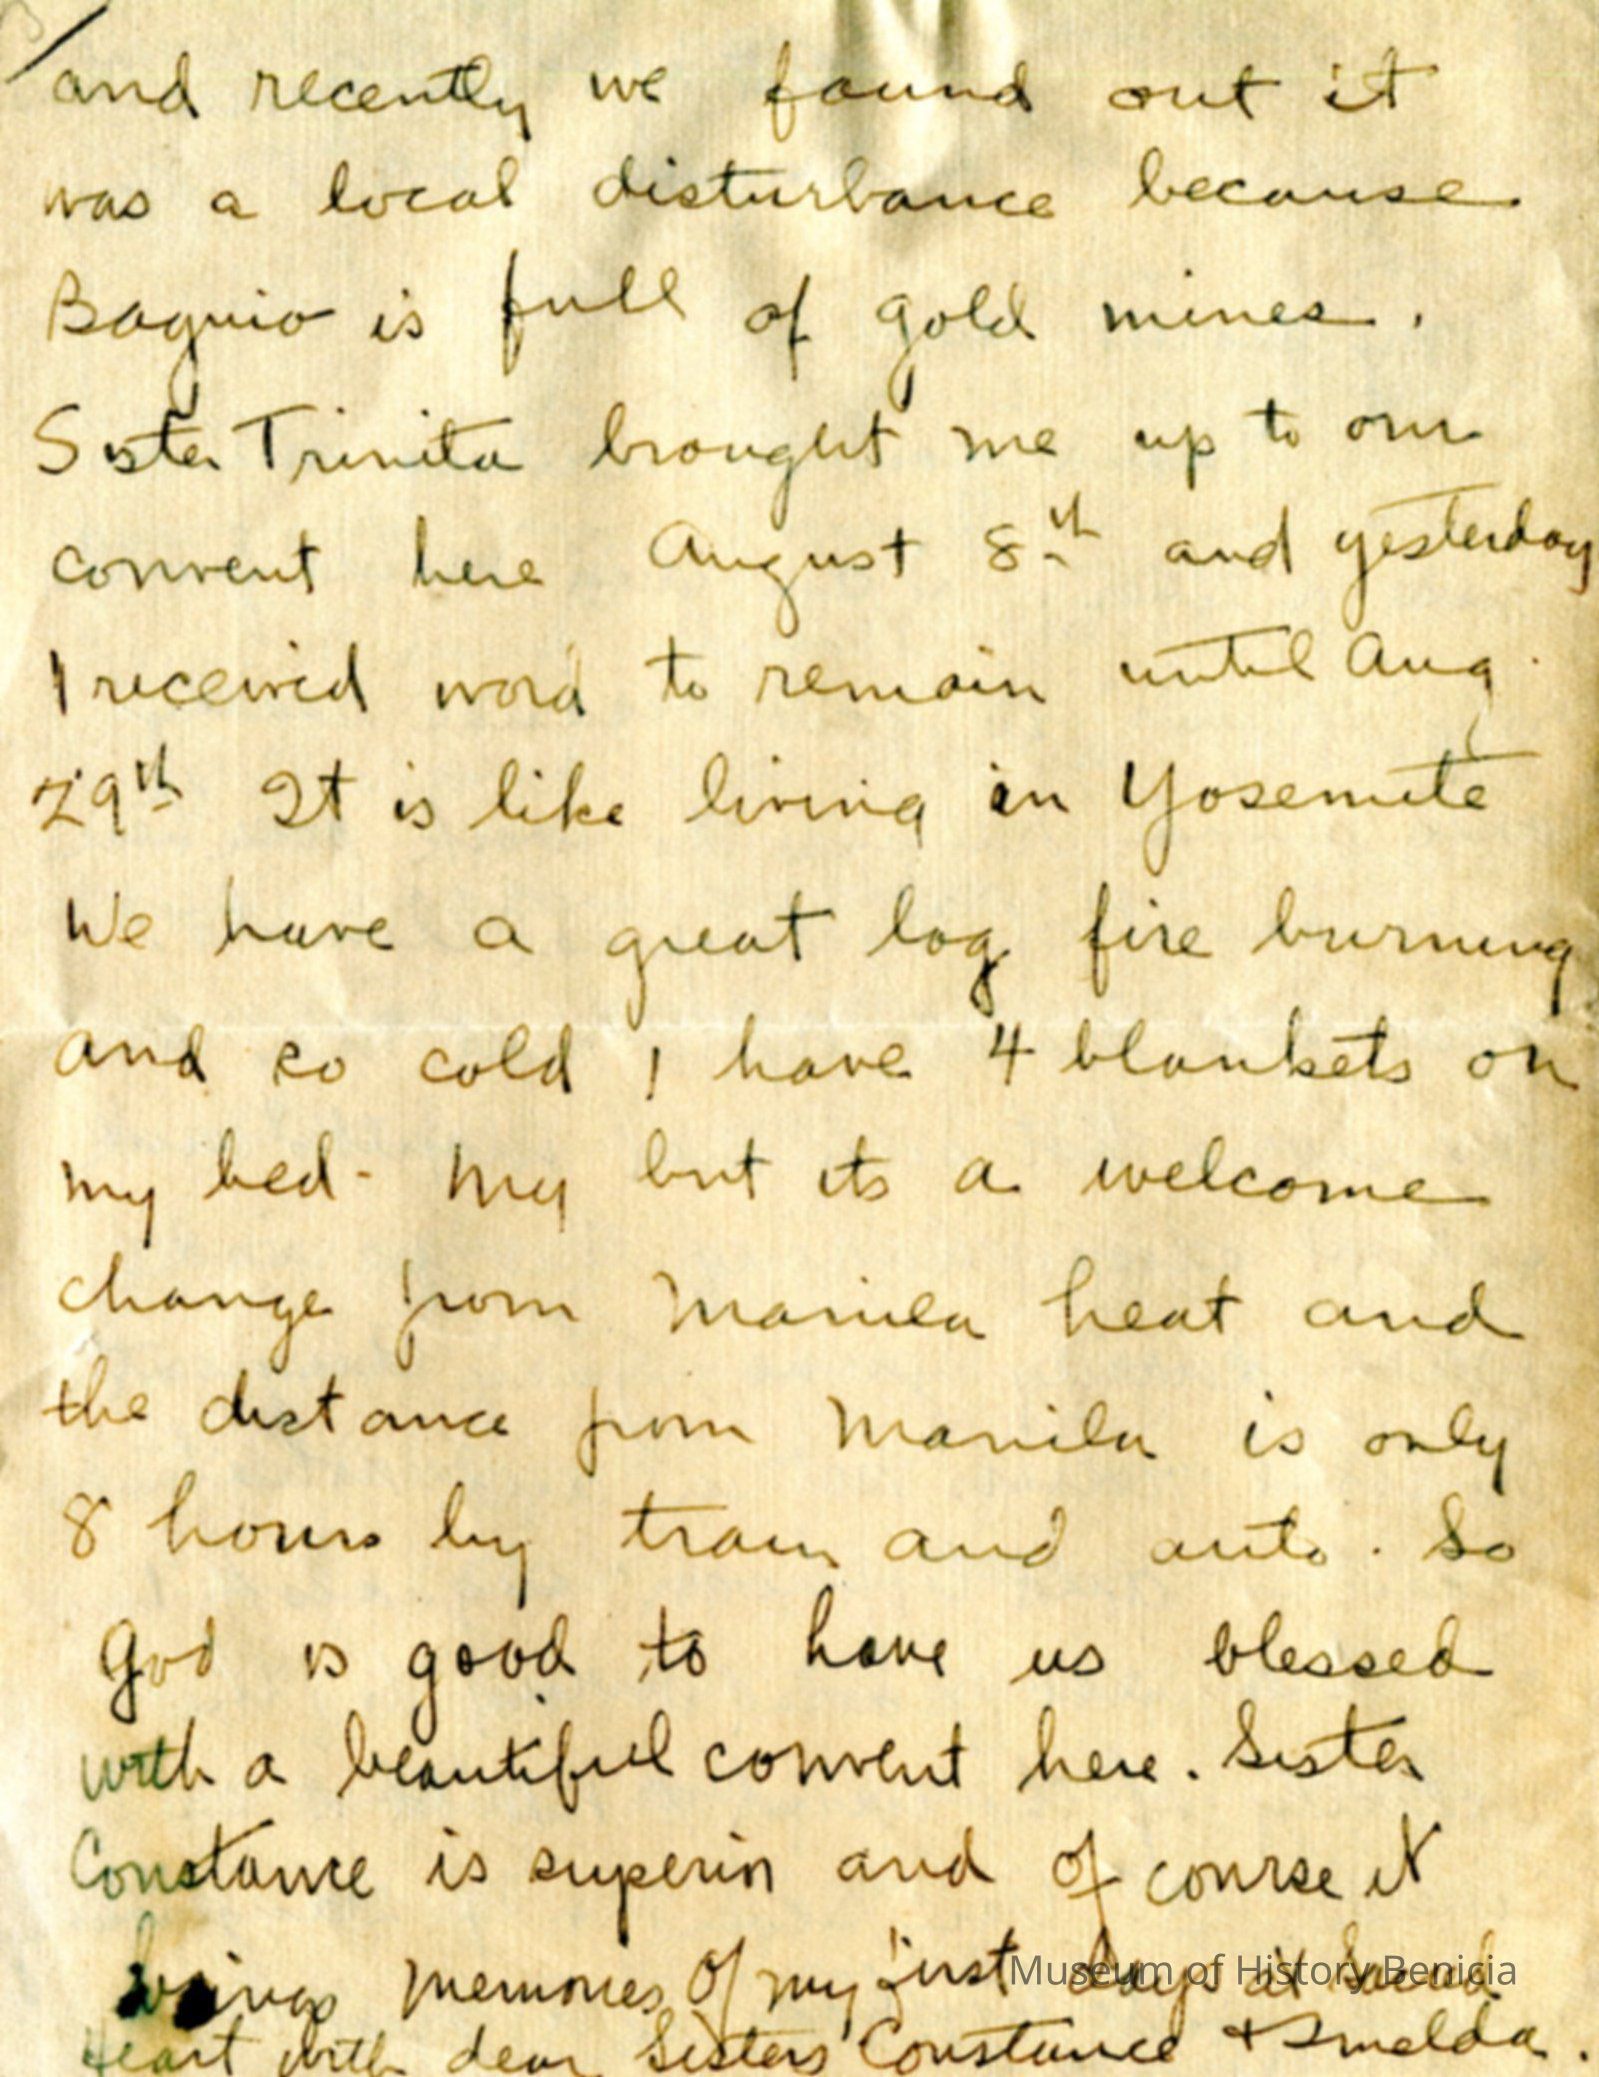 and recently we found out it
was a local disturbance because
Baguio is full of gold mines.
Sister Trinita brought me up to our
convent here August 8th and yesterday
I received word to remain until Aug.
29th It is like living in Yosemite
We have a great log fire burning
and so cold I have 4 blankets on
my bed - My but its a welcome
change from Manila heat and
the distance from Manila is only
8 hours by train and auto. So
God is good to have us blessed
with a beautiful convent here. Sister
Constance is superior and of course it
brings memories of my first days at Sacred
Heart with dear Sisters Constance + Imelda.
Museum of History Benicia